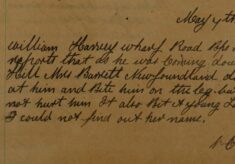 May 4th
William Harvey Wharf Road
reports that as he was Coming Down
Hill Mrs Barrett Newfoundland do
at him and Bite him on the leg but
not hurt him It also Bit a young L
I could not find out her name.